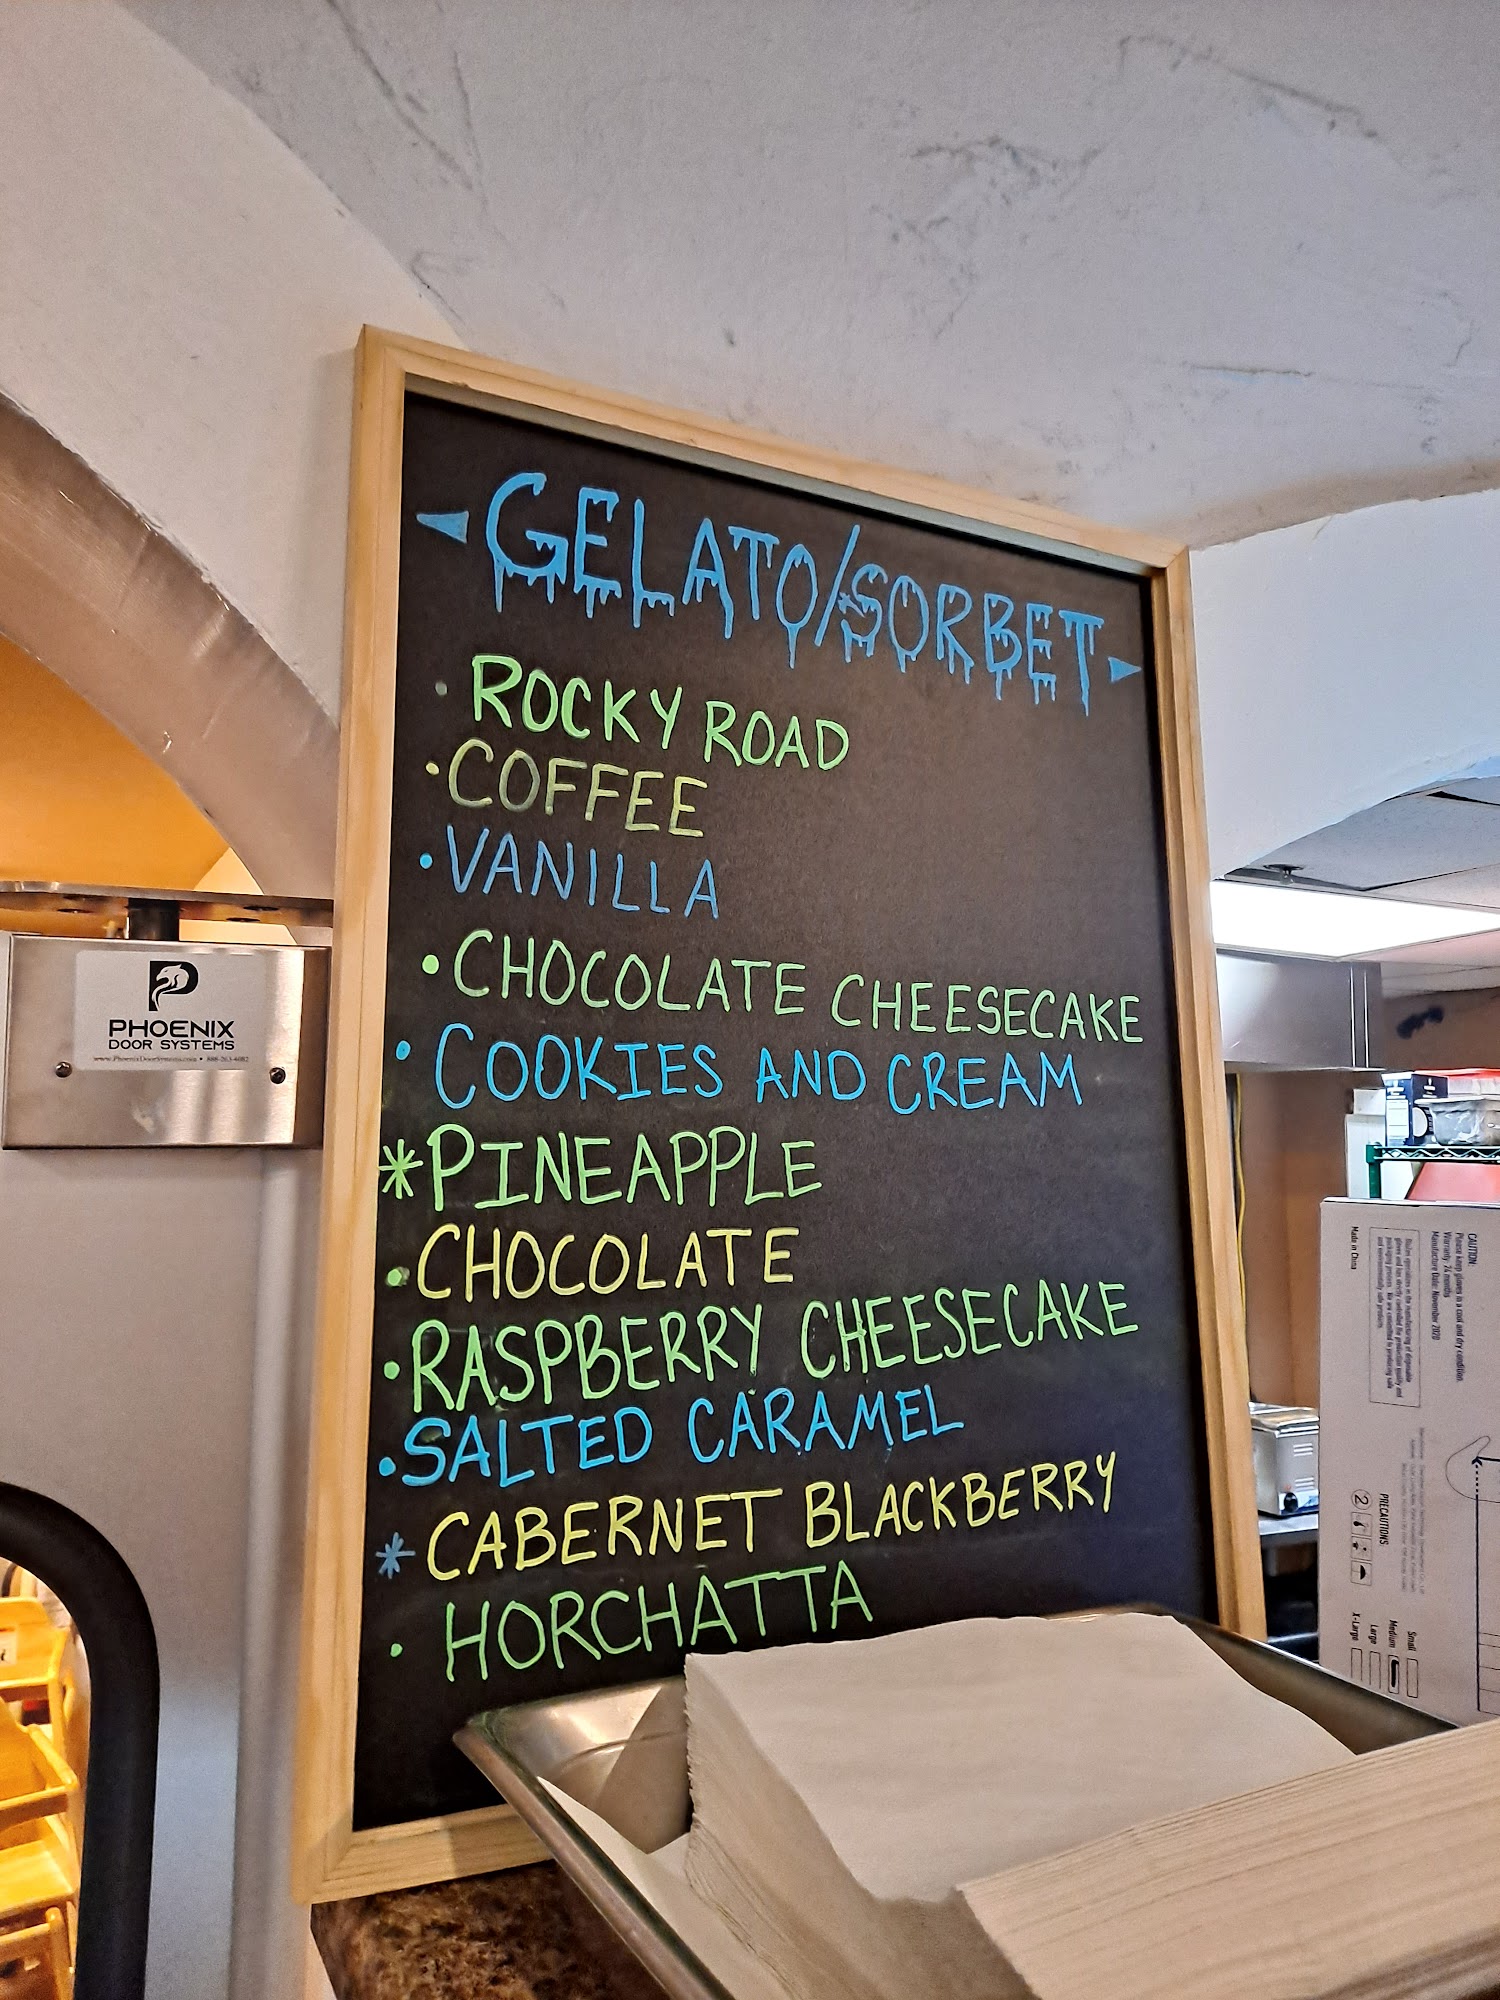 GELATO/*SORBET
• ROCKY ROAD
• COFFEE
• VANILLA
• CHOCOLATE CHEESECAKE
• COOKIES AND CREAM
* PINEAPPLE
• CHOCOLATE
• RASPBERRY CHEESECAKE
• SALTED CARAMEL
* CABERNET BLACKBERRY
• HORCHATTA
P
PHOENIX
DOOR SYSTEMS
www.PhoenixDoorSystems.com • 888-263-4082
CAUTION:
Please keep gloves in a cool and dry condition.
Warranty: 24 months
Manufacture Date: November 2020
Made in China
PRECAUTIONS:
2
Small
Medium
Large
X-Large